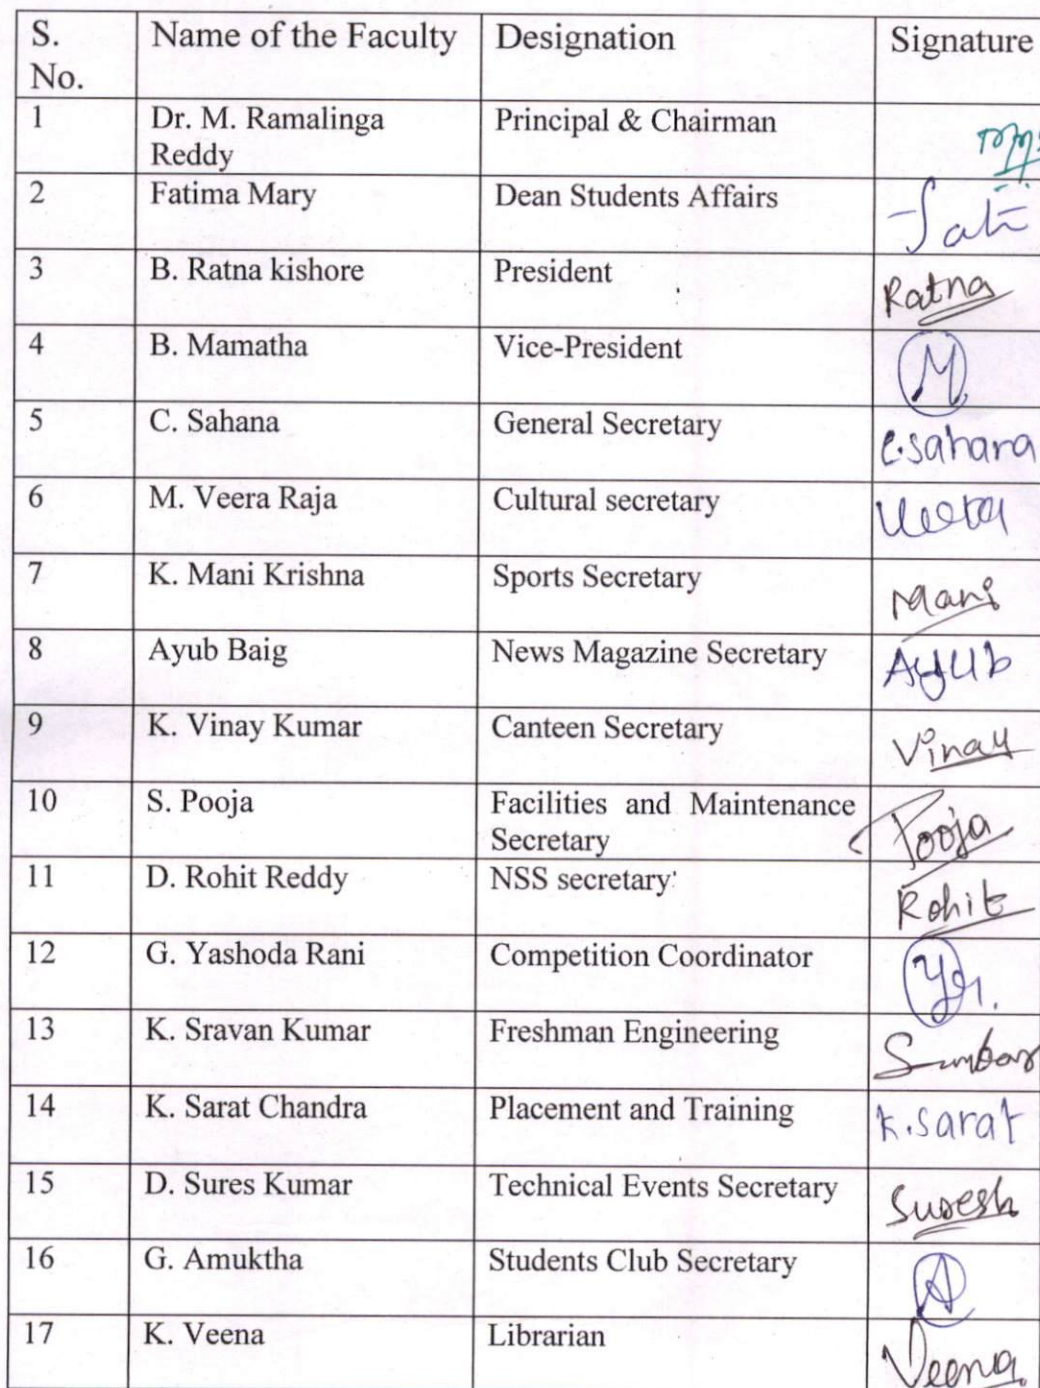 S. No. Name of the Faculty Designation Signature
1 Dr. M. Ramalinga Reddy Principal & Chairman
2 Fatima Mary Dean Students Affairs
3 B. Ratna kishore President Ratna
4 B. Mamatha Vice-President M
5 C. Sahana General Secretary C.sahana
6 M. Veera Raja Cultural secretary Veera
7 K. Mani Krishna Sports Secretary Mani
8 Ayub Baig News Magazine Secretary Ayub
9 K. Vinay Kumar Canteen Secretary Vinay
10 S. Pooja Facilities and Maintenance Secretary Pooja
11 D. Rohit Reddy NSS secretary Rohit
12 G. Yashoda Rani Competition Coordinator
13 K. Sravan Kumar Freshman Engineering
14 K. Sarat Chandra Placement and Training K.sarat
15 D. Sures Kumar Technical Events Secretary Suresh
16 G. Amuktha Students Club Secretary A
17 K. Veena Librarian Veena